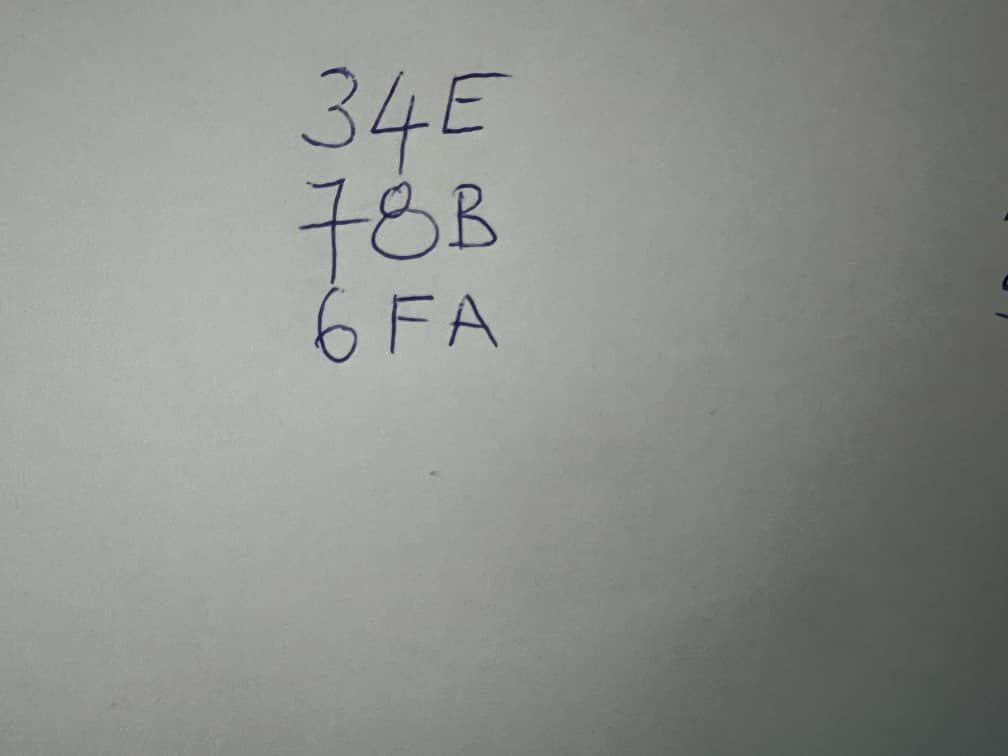 34E
78B
6FA